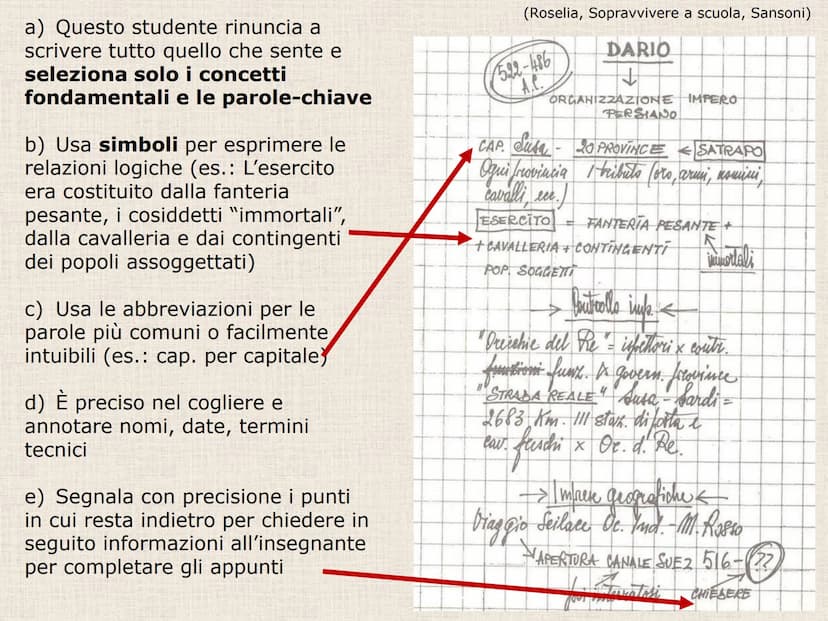 (Roselia, Sopravvivere a scuola, Sansoni)
a) Questo studente rinuncia a
scrivere tutto quello che sente e
seleziona solo i concetti
fondamentali e le parole-chiave
b) Usa simboli per esprimere le
relazioni logiche (es.: L’esercito
era costituito dalla fanteria
pesante, i cosiddetti “immortali”,
dalla cavalleria e dai contingenti
dei popoli assoggettati)
c) Usa le abbreviazioni per le
parole più comuni o facilmente
intuibili (es.: cap. per capitale)
d) È preciso nel cogliere e
annotare nomi, date, termini
tecnici
e) Segnala con precisione i punti
in cui resta indietro per chiedere in
seguito informazioni all’insegnante
per completare gli appunti
DARIO
522-486
A.C.
ORGANIZZAZIONE IMPERO
PERSIANO
CAP. Susa - 20 PROVINCE ← SATRAPO
Ogni provincia 1 tributo (oro, armi, uomini,
cavalli, ecc.)
ESERCITO = FANTERIA PESANTE +
+ CAVALLERIA + CONTINGENTI immortali
POP. SOGGETTI
→ Controllo imp. ←
"Orecchie del Re" = ispettori x contr.
funzioni funz. x govern. province
"STRADA REALE" Susa - Sardi =
2683 Km. 111 staz. di posta e
cav. freschi x Or. d. Re.
→ Imprese geografiche ←
Viaggio Scilace Oc. Ind. - M. Rosso
→ APERTURA CANALE SUEZ 516 - ??
poi interratosi CHIEDERE